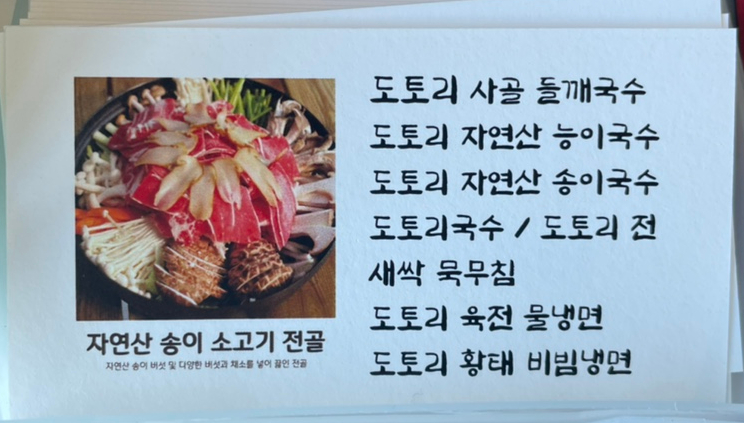 자연산 송이 소고기 전골
자연산 송이 버섯 및 다양한 버섯과 채소를 넣어 끓인 전골
도토리 사골 들깨국수
도토리 자연산 능이국수
도토리 자연산 송이국수
도토리국수 / 도토리 전
새싹 묵무침
도토리 육전 물냉면
도토리 황태 비빔냉면